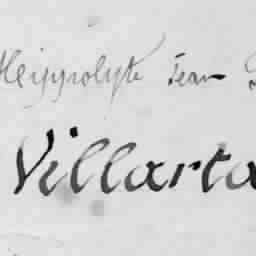 Heippolyte Jean
Villarta